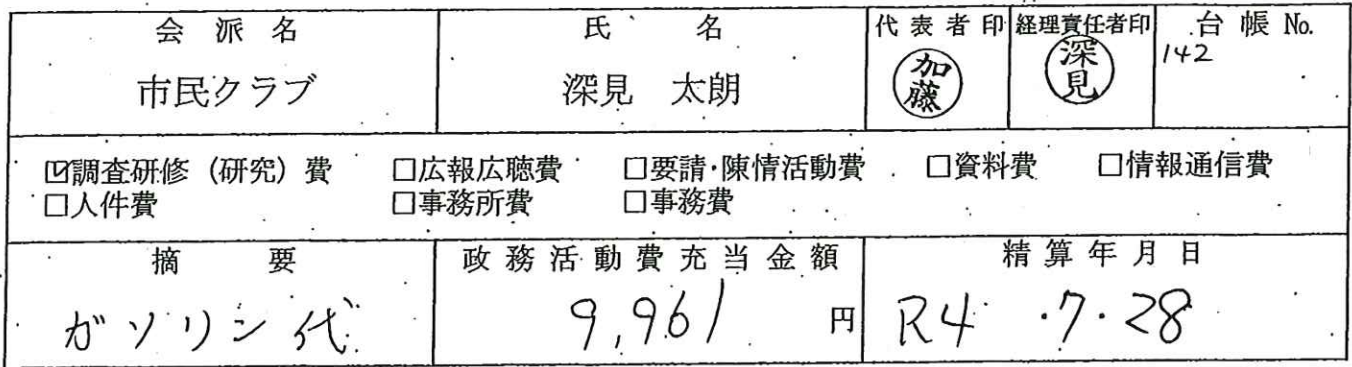 会派名 氏名 代表者印 経理責任者印 台帳No.
市民クラブ 深見 太朗 加藤 深見 142
☑調査研修（研究）費 □広報広聴費 □要請・陳情活動費 □資料費 □情報通信費
□人件費 □事務所費 □事務費
摘要 政務活動費充当金額 精算年月日
ガソリン代 9,961 円 R4・7・28